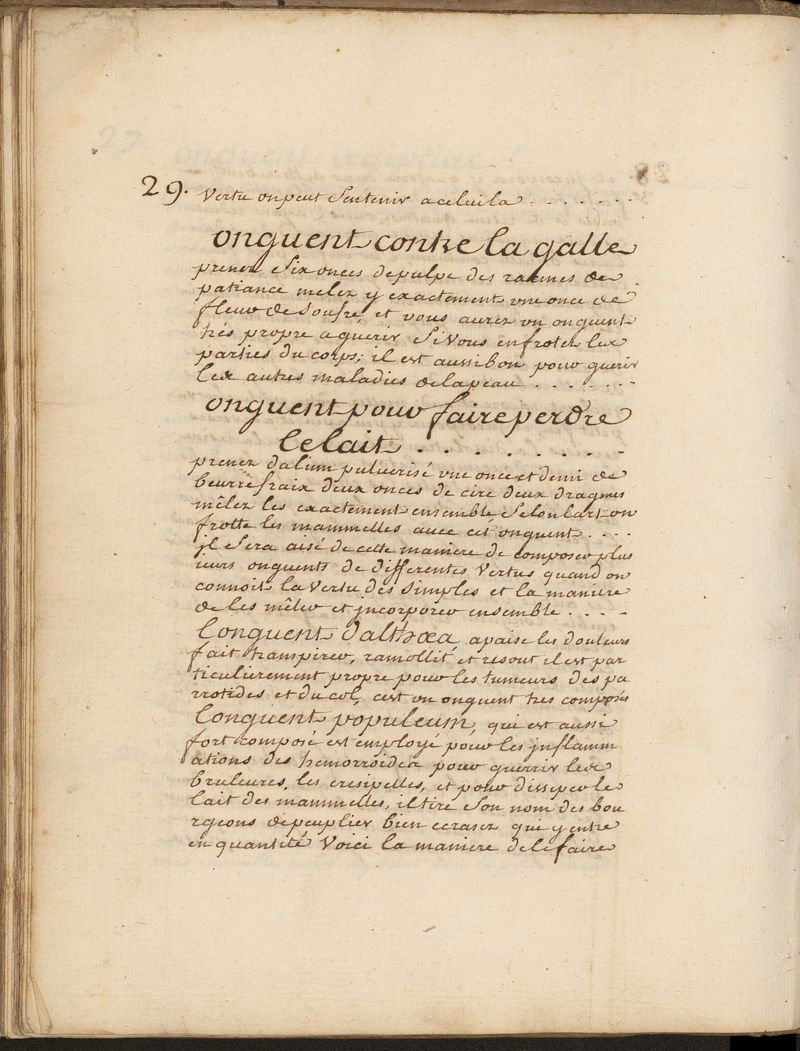 29. vertu on peut Sentenir a celui la . . . . . . .
onguent contre la galle
prenez Six onces de pulpe des racines de
patiance melez y exactement vne once de
fleur de Soufre, et vous aurez un onguent
trés propre a guerir Si vous en frotez les
parties du corps; il est aussi bon pour guerir
les autres maladies de la peau . . . . . . .
onguent pour faire perdre
le lait . . . . . . . . .
prenez d'alun pulverisé vne once et demi de
beurre fraix deux onces de cire deux dragmes
mêlez les exactement ensemble Selon lart on
frotte les mammelles avec cet onguent . . . .
jl Sera aisé de cette maniere de composer plus
ieurs onguents de differentes vertus quand on
connoit la vertu des simples et la maniere
de les mêler et jncorporer ensemble . . . .
l'onguent d'althœá, apaise les douleurs
fait transpirer, ramollit et resout il est par
ticulierement propre pour les tumeurs des pa
rrotides et du col, cest un onguent tres composés
l'onguent populeum, qui est aussi
fort composé est employé pour les jnflamm
ations des hemorroides pour guerrir les
bruleures, les eresipelles, et pour dissiper le
lait des mammelles, il tire Son nom des bou
rgeons de peuplier bien ecrasez qui y entre
en quantité Voici la maniere de le faire